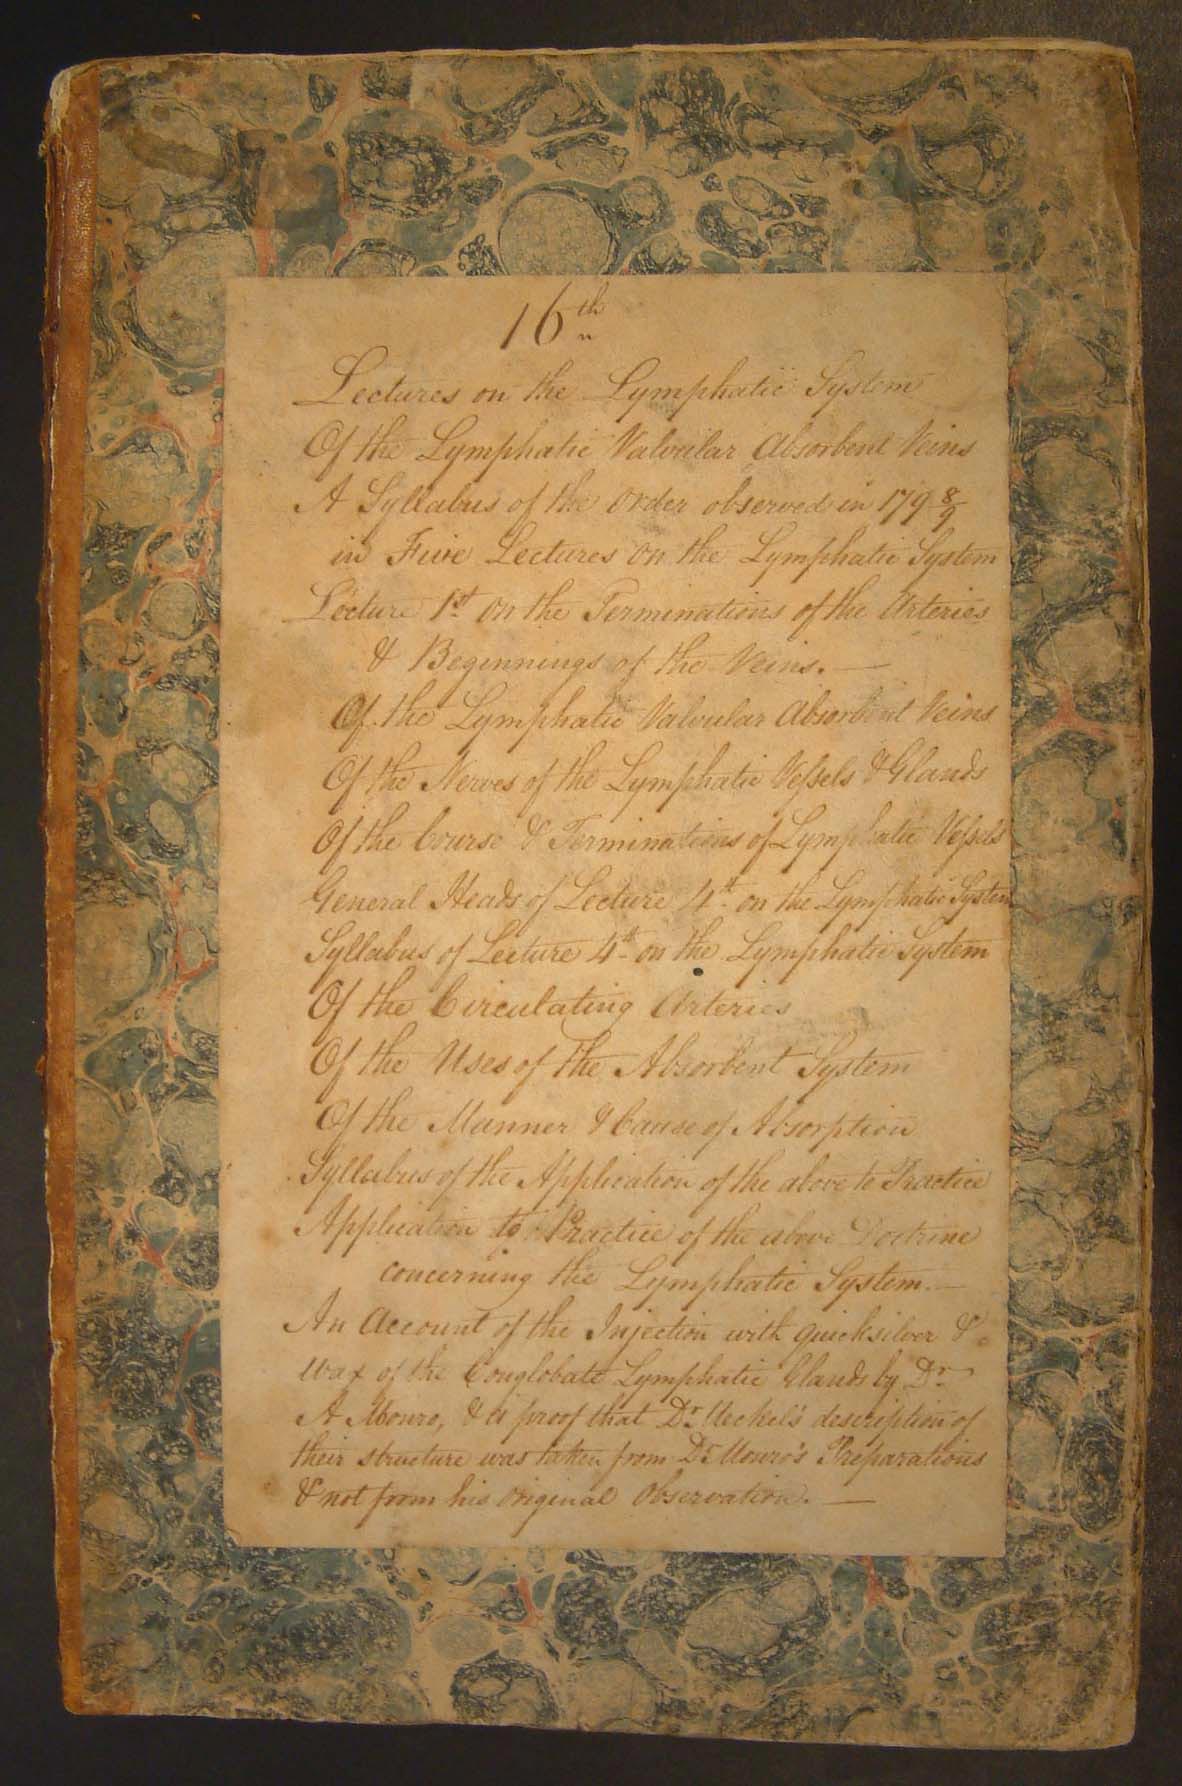 16th
Lectures on the Lymphatic System
Of the Lymphatic Valvular Absorbent Veins
A Syllabus of the Order observed in 179 8/9
in Five Lectures on the Lymphatic System
Lecture 1st on the Terminations of the Arteries
& Beginnings of the Veins. —
Of the Lymphatic Valvular Absorbent Veins
Of the Nerves of the Lymphatic Veſsels & Glands
Of the Course & Terminations of Lymphatic Veſsels
General Heads of Lecture 4th on the Lymphatic System
Syllabus of Lecture 4th on the Lymphatic System
Of the Circulating Arteries
Of the Uses of the Absorbent System
Of the Manner & Cause of Absorption
Syllabus of the Application of the above to Practice
Application to Practice of the above Doctrine
concerning the Lymphatic System. —
An Account of the Injection with quicksilver &
wax of the Conglobate Lymphatic Glands by Dr
A Monro, & a proof that Dr Meckel's description of
their structure was taken from Dr Monro's Preparations
& not from his original Observation. —